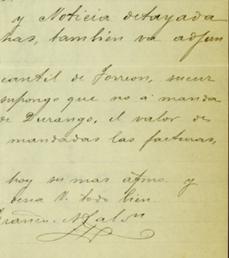 y Noticia detayada
has, también va adjun
cantil de Torreon, sucur
supongo que no á manda
de Durango, el valor de
mandadas las facturas,
hoy su mas afmo. y
desea V. todo bien